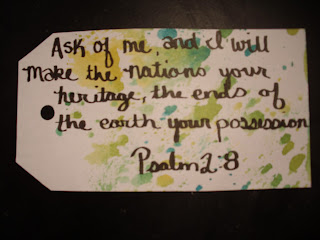 Ask of me, and I will
make the nations your
heritage, the ends of
the earth your possession
Psalm 2:8